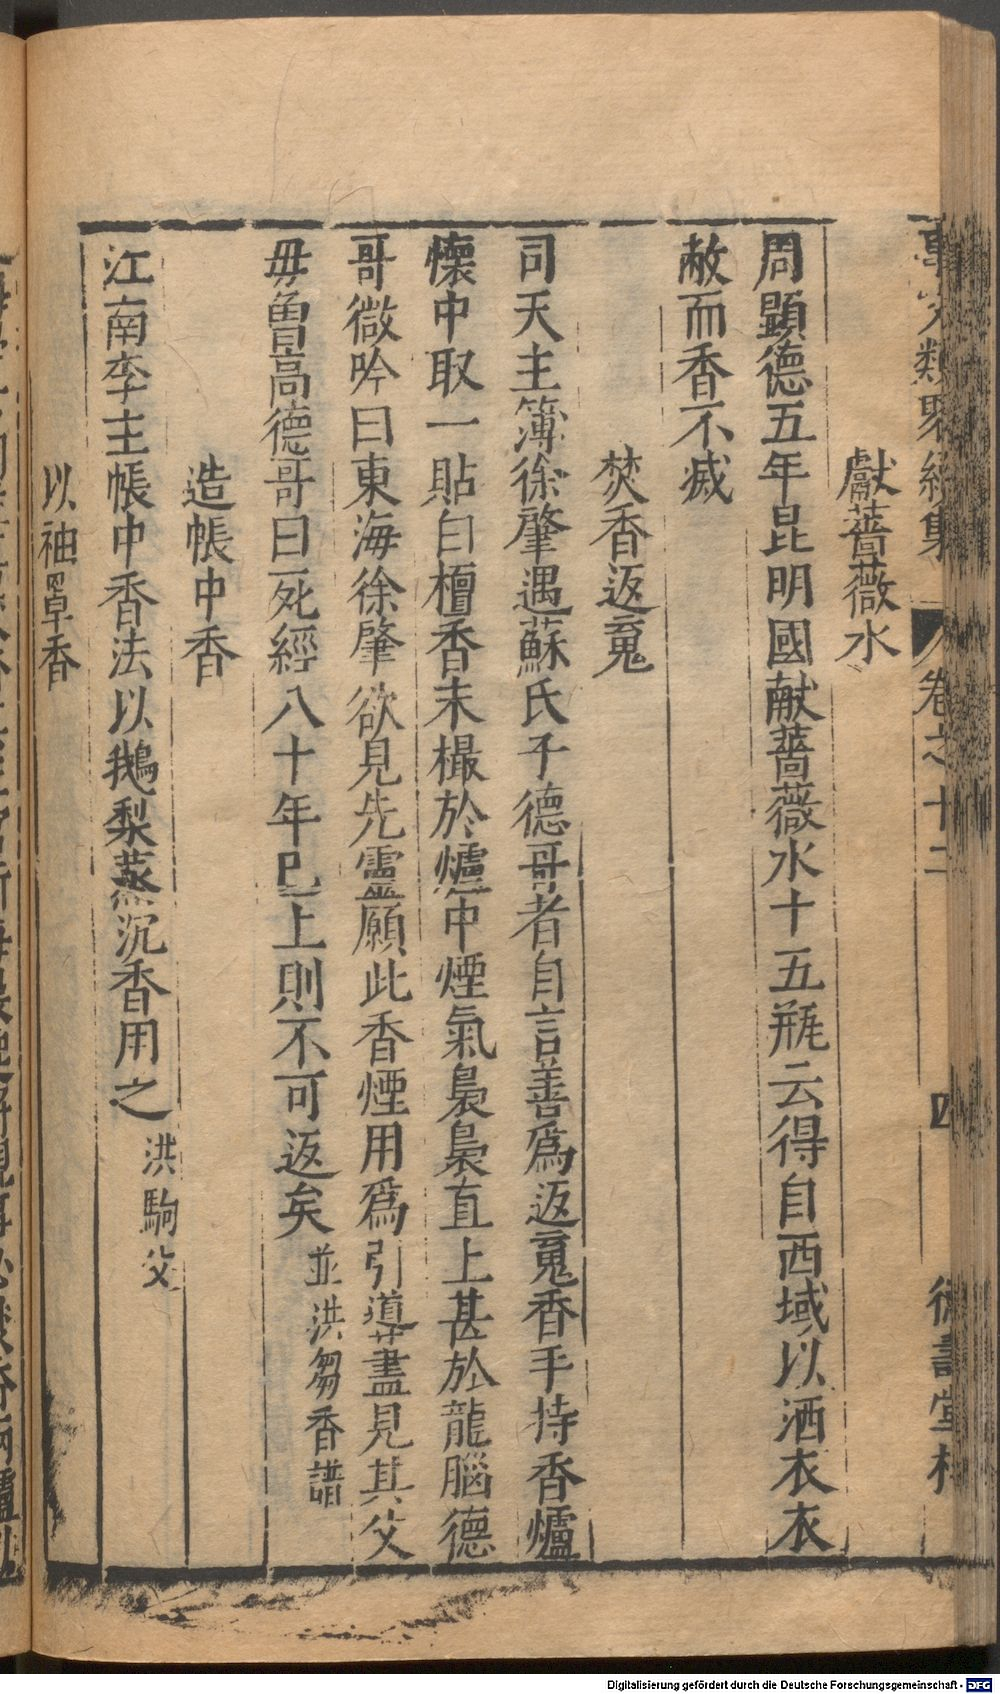 事文類聚續集 卷之十二 四 德壽堂梓
獻薔薇水
周顯德五年昆明國献薔薇水十五瓶云得自西域以洒衣衣
敝而香不滅
焚香返䰟
司天主簿徐肇遇蘇氏子德哥者自言善爲返䰟香手持香爐
懷中取一貼白檀香末撮於爐中煙氣裊裊直上甚於龍腦德
哥微吟曰東海徐肇欲見先靈願此香煙用爲引導盡見其父
毋魯高德哥曰死經八十年已上則不可返矣 並洪芻香譜
造帳中香
江南李主帳中香法以鵝梨蒸沉香用之 洪駒父
以袖罩香
Digitalisierung gefördert durch die Deutsche Forschungsgemeinschaft - DFG